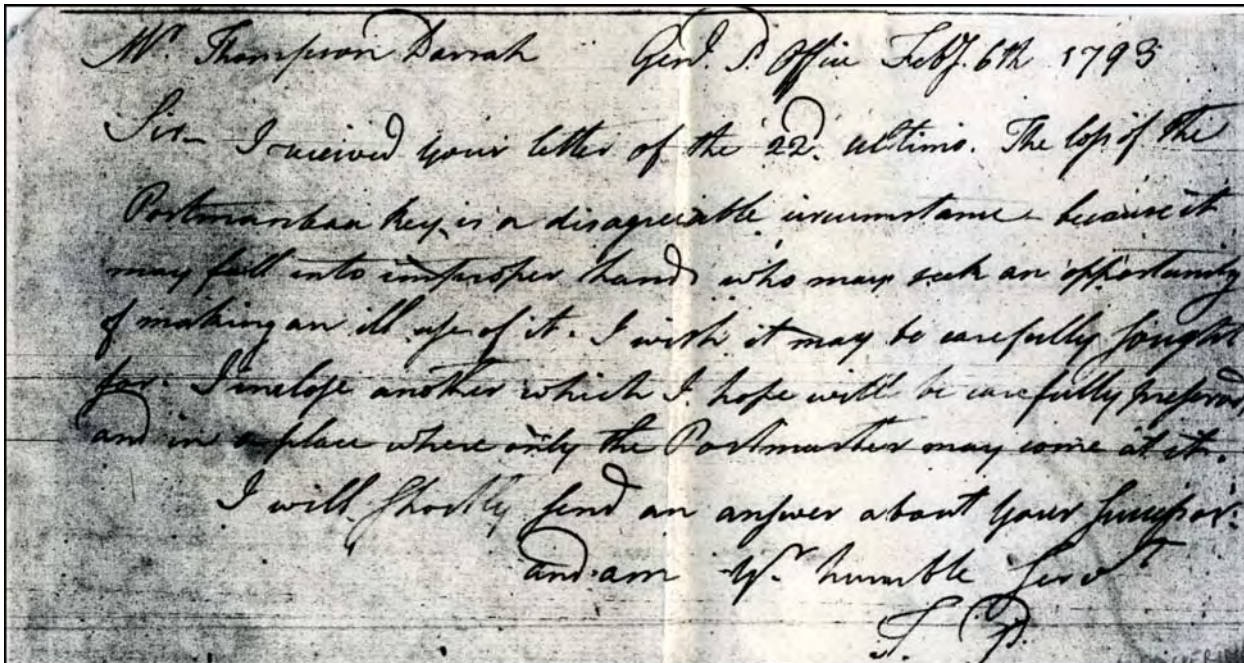 Mr. Thompson Darrah Genl. P. Office Feby. 6th 1793
Sir— I received your letter of the 22d. ultimo. The loss of the
Portmanteau key, is a disagreeable circumstance because it
may fall into improper hands who may seek an opportunity
of making an ill use of it. I wish it may be carefully sought
for. I inclose another which I hope will be carefully preserved
and in a place where only the Postmaster may come at it.
I will shortly send an answer about your successor.
and am Yr. humble Servt.
T. P.